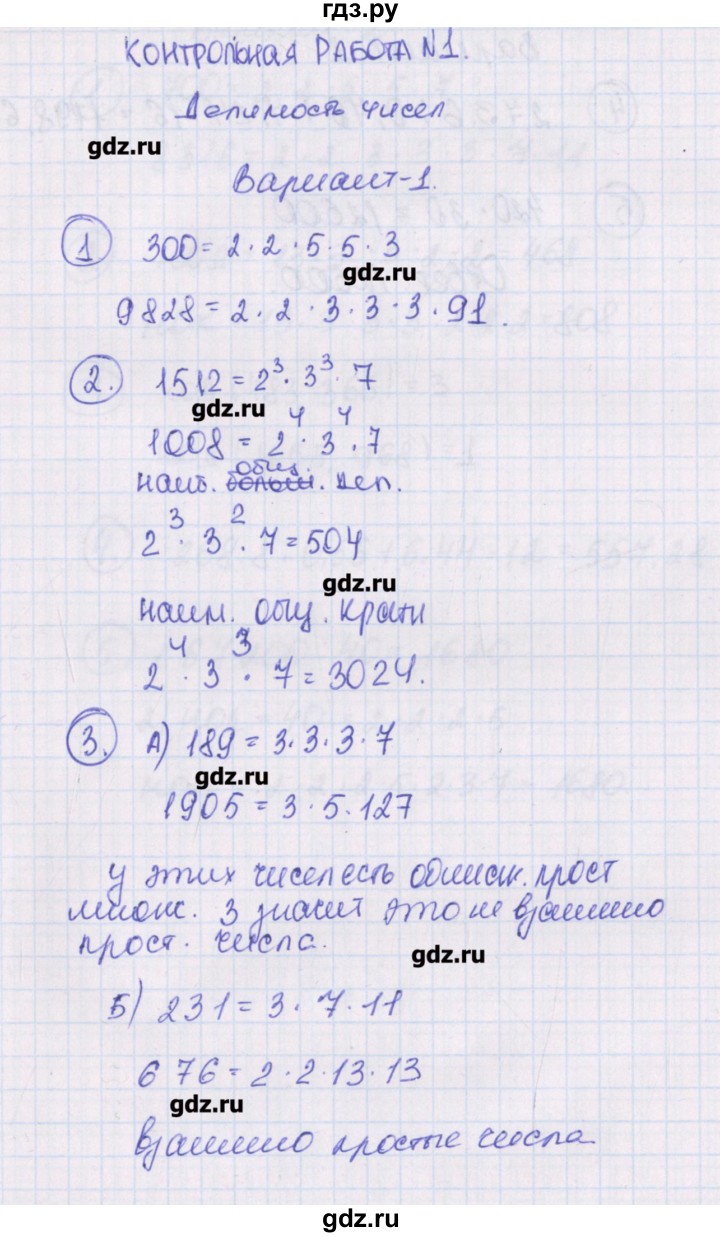 гдз.ру
КОНТРОЛЬНАЯ РАБОТА №1.
Делимость чисел
gdz.ru
Вариант-1.
1 300 = 2 · 2 · 5 · 5 · 3
gdz.ru
9828 = 2 · 2 · 3 · 3 · 3 · 91.
2. 1512 = 2³ · 3³ · 7
gdz.ru
1008 = 2⁴ · 3⁴ · 7
общ.
наиб. больш. дел.
2³ · 3² · 7 = 504
gdz.ru
наим. общ. кратн
2⁴ · 3³ · 7 = 3024.
3. А) 189 = 3·3·3·7
gdz.ru
1905 = 3·5·127
У этих чисел есть прост
множ. 3 значит это не взаимно
прост. числа.
gdz.ru
Б) 231 = 3 · 7 · 11
676 = 2 · 2 · 13 · 13
gdz.ru
Взаимно простые числа
gdz.ru